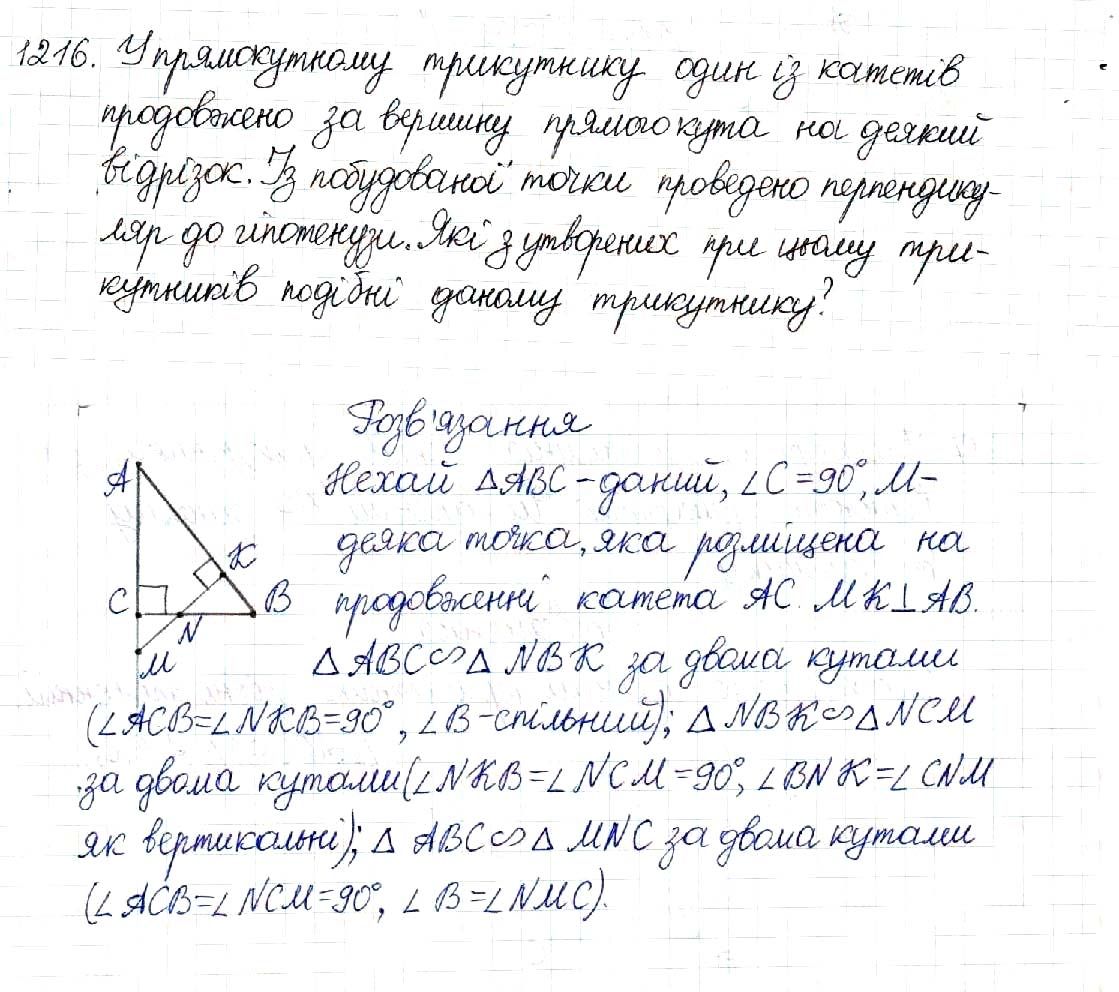 1216. У прямокутному трикутнику один із катетів
продовжено за вершину прямого кута на деякий
відрізок. Із побудованої точки проведено перпендику-
ляр до гіпотенузи. Які з утворених при цьому три-
кутників подібні даному трикутнику?
Розв'язання
Нехай △ABC - даний, ∠C = 90°, M-
деяка точка, яка розміщена на
продовженні катета AC. MK⊥AB.
△ABC∽△NBK за двома кутами
(∠ACB=∠NKB=90°, ∠B-спільний); △NBK∽△NCM
за двома кутами (∠NKB=∠NCM=90°, ∠BNK=∠CNM
як вертикальні); △ABC∽△MNC за двома кутами
(∠ACB=∠NCM=90°, ∠B=∠NMC).
A
K
C
B
N
M